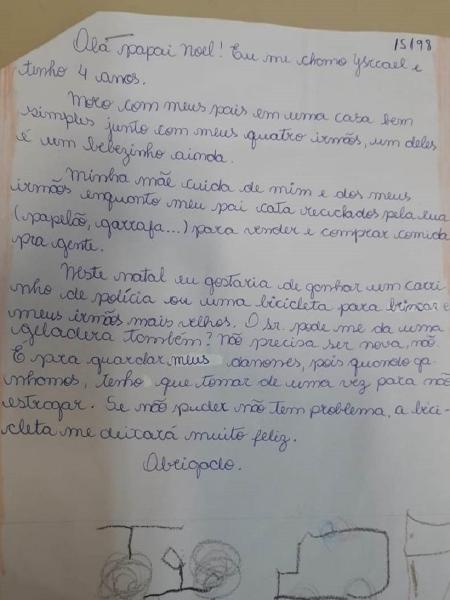 15/98
Olá papai Noel! Eu me chamo Ysccael e
tenho 4 anos.
Moro com meus pais em uma casa bem
simples junto com meus quatro irmãos, um deles
é um bebezinho ainda.
Minha mãe cuida de mim e dos meus
irmãos enquanto meu pai cata reciclados pela rua
(papelão, garrafa...) para vender e comprar comida
pra gente.
Neste natal eu gostaria de ganhar um carri
nho de polícia ou uma bicicleta para brincar e
meus irmãos mais velhos. O sr. pode me da uma
geladera também? Não precisa ser nova, não.
É para guardar meus danones, pois quando ga-
nhamos, tenho que tomar de uma vez para não
estragar. Se não puder não tem problema, a bici-
cleta me deixará muito feliz.
Obrigado.